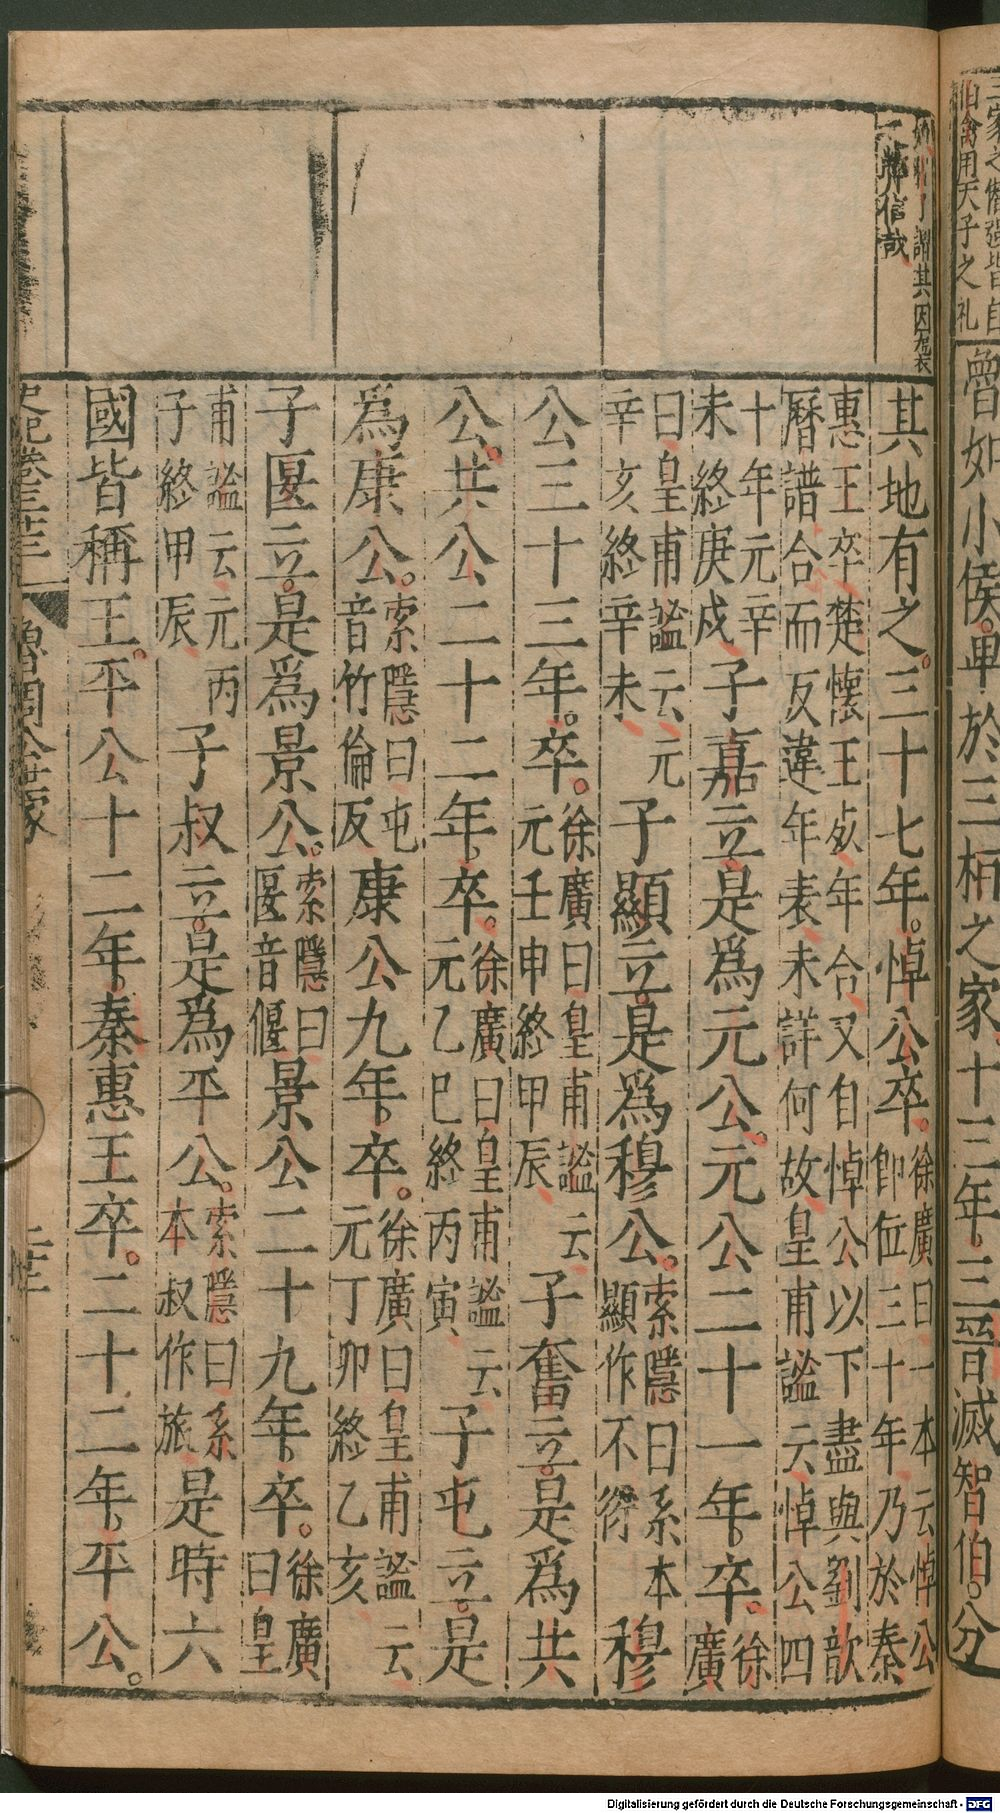 三家之僭強皆自
伯禽用天子之礼
曾如小侯卑於三桓之家十三年三晉滅智伯分
謂其因
信哉
其地有之三十七年悼公卒徐廣曰一本云悼公
即位三十年乃於秦
惠王卒楚懷王歿年合又自悼公以下盡與劉歆
曆譜合而反違年表未詳何故皇甫謐云悼公四
十年元辛
未終庚戌子嘉立是為元公元公二十一年卒徐
廣
曰皇甫謐云元
辛亥終辛未子顯立是為穆公索隱曰系本
顯作不衍穆
公三十三年卒徐廣曰皇甫謐云
元壬申終甲辰子奮立是為共
公共公二十二年卒徐廣曰皇甫謐云
元乙巳終丙寅子屯立是
為康公索隱曰屯
音竹倫反康公九年卒徐廣曰皇甫謐云
元丁卯終乙亥
子匽立是為景公索隱曰
匽音偃景公二十九年卒徐廣
曰皇
甫謐云元丙
子終甲辰子叔立是為平公索隱曰系
本叔作旅是時六
國皆稱王平公十二年秦惠王卒二十二年平公
魯周公世家